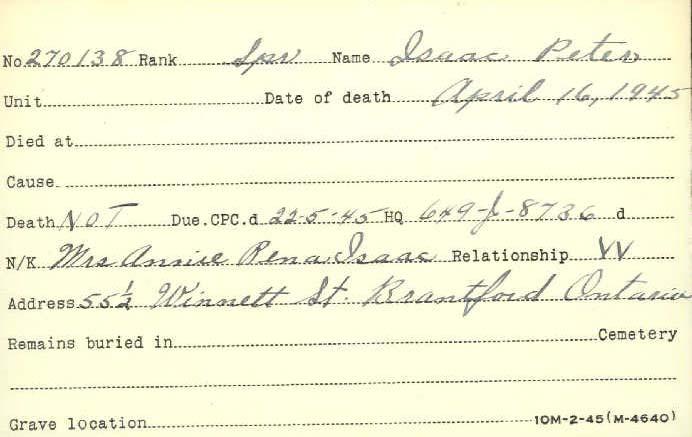 No 270138 Rank Spr Name Isaac Peter
Unit Date of death April 16, 1945
Died at
Cause
Death NOT Due. CPC.d 22-5-45 HQ 649-J-8736 d
N/K Mrs Annie Rena Isaac Relationship W
Address 55½ Winnett St. Brantford Ontario
Remains buried in Cemetery
Grave location 10M-2-45 (M-4640)